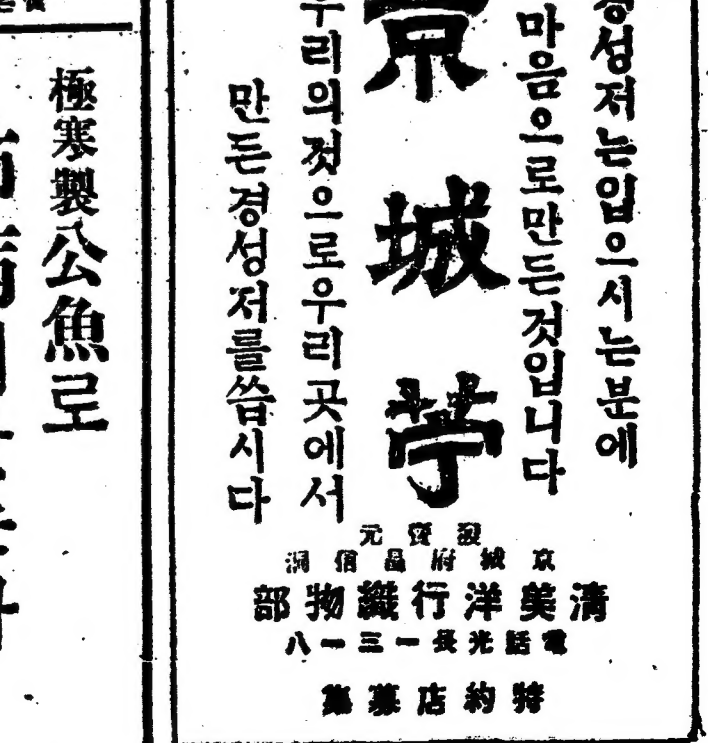 경성저는입으시는분에
마음으로만든것입니다
京城苧
우리의것으로우리곳에서
만든경성저를씁시다
發賣元
京城府昌信洞
淸美洋行織物部
電話光長一三一八
特約店募集
極寒製公魚로